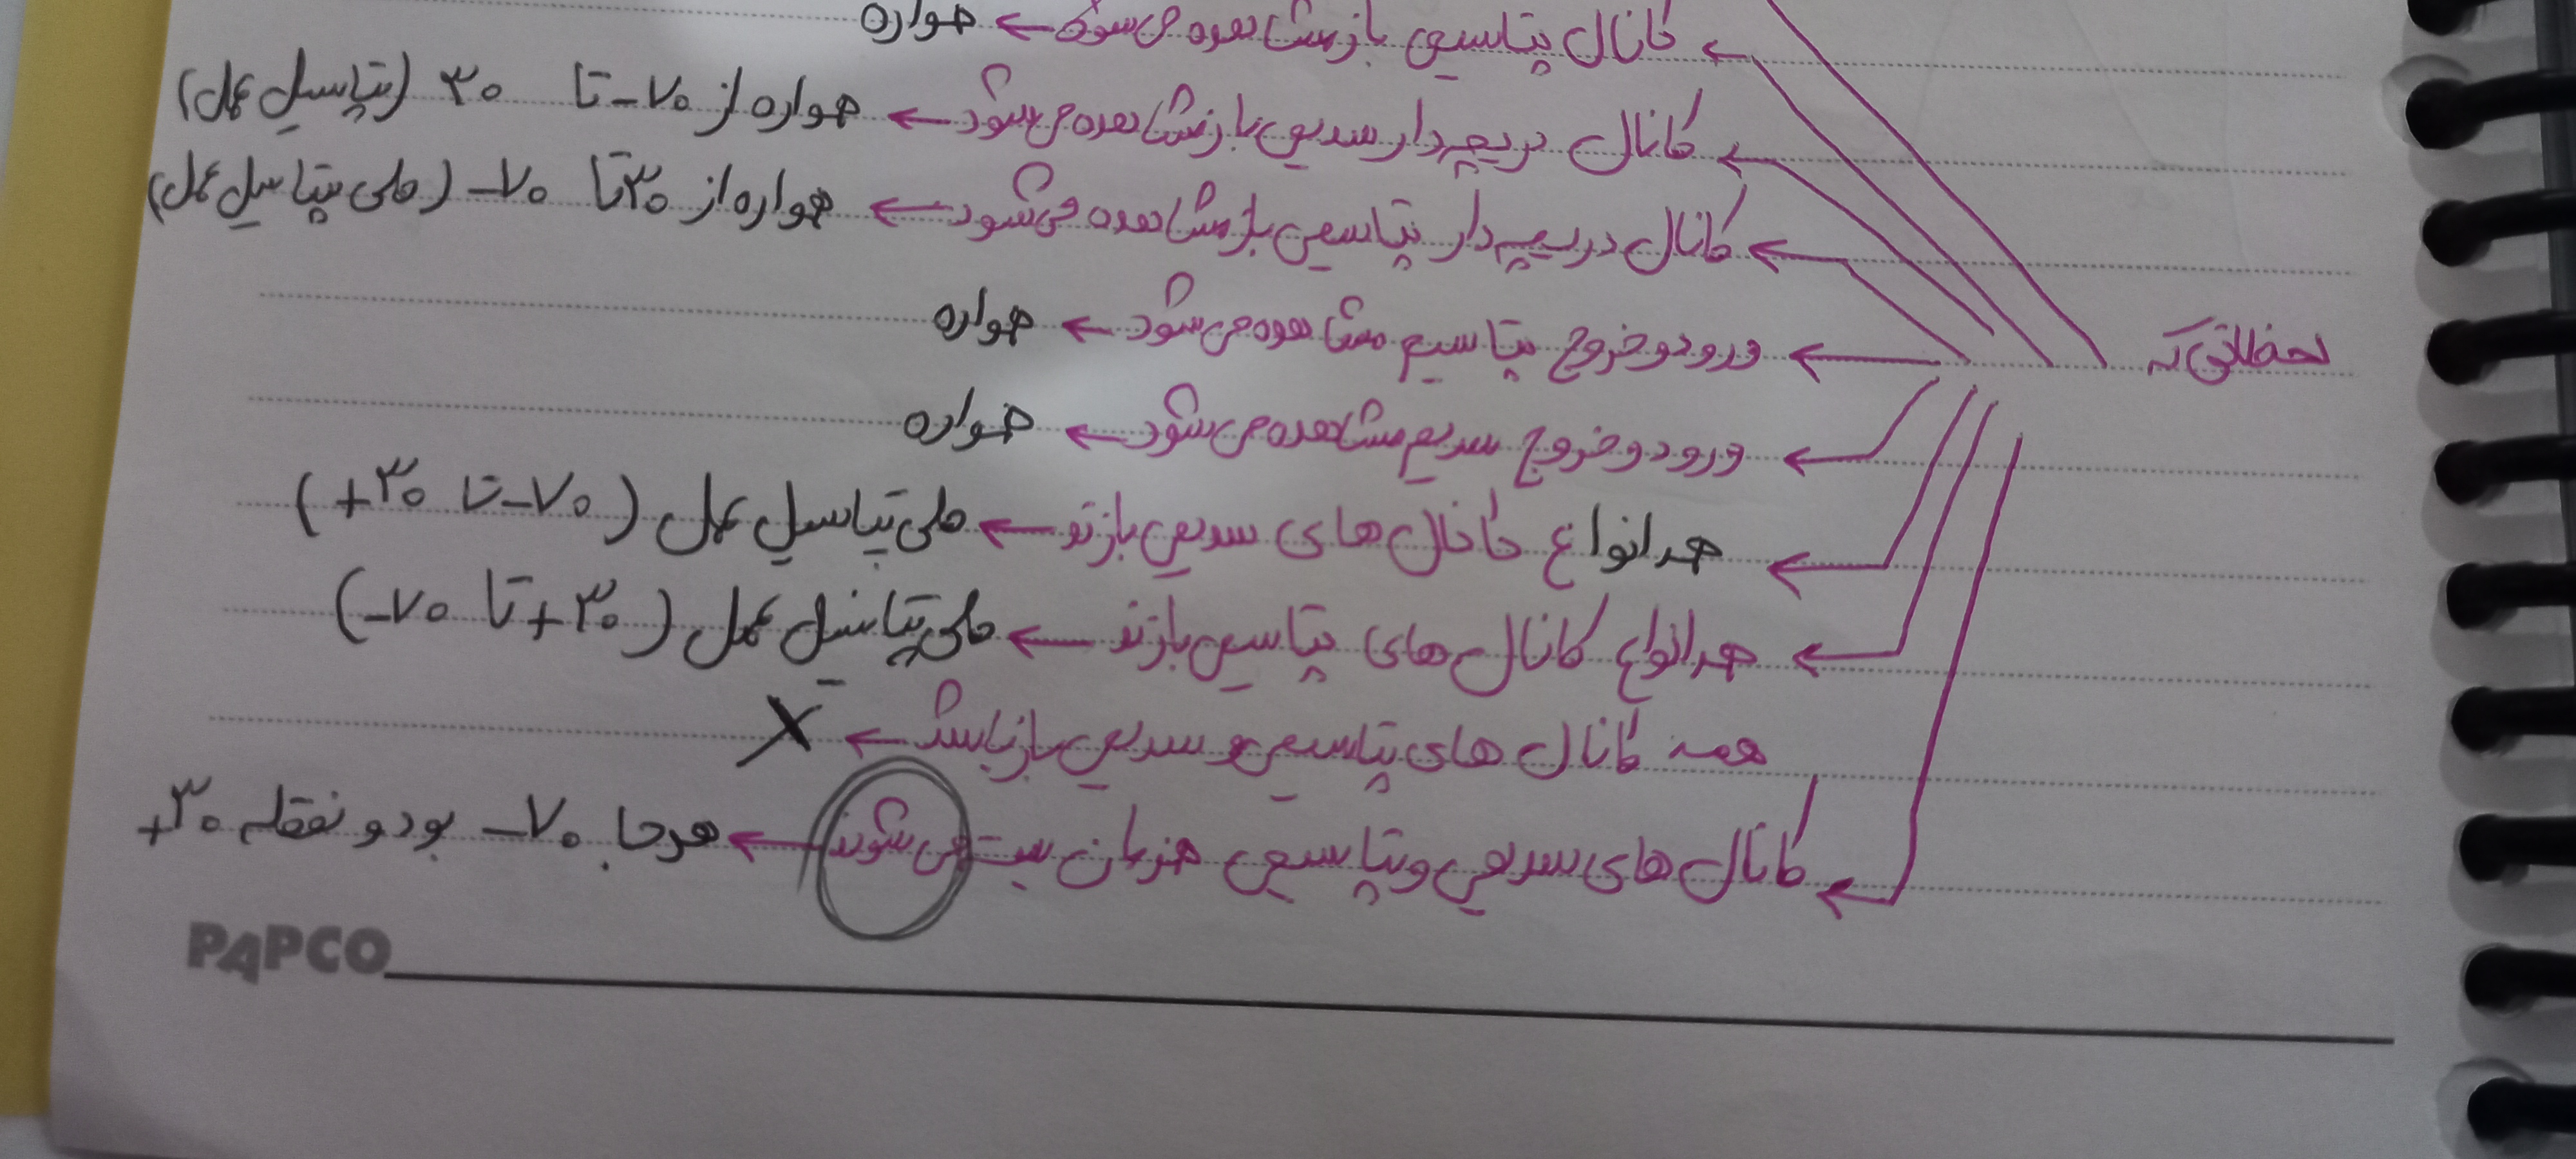 کانال پتاسیمی باز مشاهده می‌شود ← همواره
کانال دریچه‌دار سدیمی باز مشاهده می‌شود ← همواره از ۷۰- تا ۳۰ (پتاسیل عمل)
کانال دریچه‌دار پتاسیمی باز مشاهده می‌شود ← همواره از ۳۰ تا ۷۰- (طی پتاسیل عمل)
لحظاتی که
ورود و خروج پتاسیم مشاهده می‌شود ← همواره
ورود و خروج سدیم مشاهده می‌شود ← همواره
هر انواع کانال‌های سدیمی بازند ← طی پتاسیل عمل (۷۰- تا ۳۰+)
هر انواع کانال‌های پتاسیمی بازند ← طی پتانسیل عمل (۳۰+ تا ۷۰-)
همه کانال های پتاسیمی و سدیمی باز باشد ← X
کانال های سدیمی و پتاسیمی همزمان بسته می‌شوند ← هرجا ۷۰- بود و نقطه ۳۰+
PAPCO